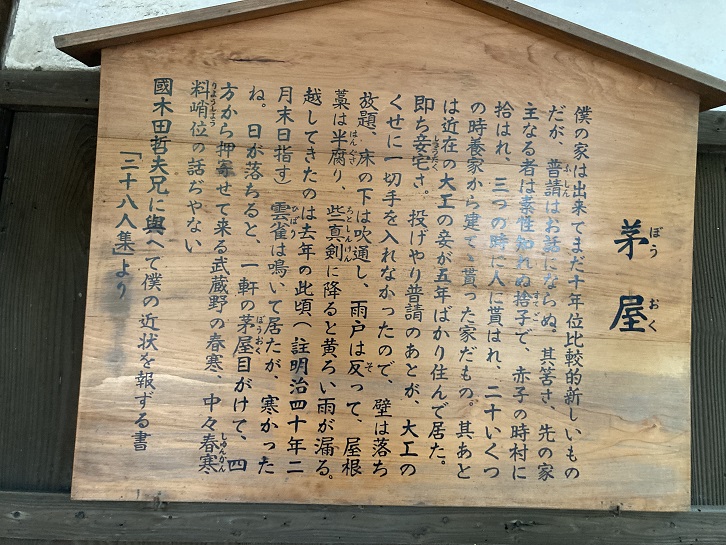 茅屋
ぼうおく
僕の家は出来てまだ十年位比較的新しいもの
だが、普請はお話にならぬ。其筈さ、先の家
ふしん
主なる者は素性知れぬ捨子で、赤子の時村に
すてご
拾はれ、三つの時に人に貰はれ、二十いくつ
の時養家から建てゝ貰った家だもの。其あと
は近在の大工の妾が五年ばかり住んで居た。
即ち妾宅さ。投げやり普請のあとが、大工の
しょうたく
くせに一切手を入れなかったので、壁は落ち
放題、床の下は吹通し、雨戸は反って、屋根
そ
藁は半腐り、些真剣に降ると黄ろい雨が漏る。
はんぐさ
ちとしんけん
越してきたのは去年の此頃(註明治四十年二
月末日指す)雲雀は鳴いて居たが、寒かった
ひばり
ね。日が落ちると、一軒の茅屋目がけて、四
ぼうおく
方から押寄せて来る武蔵野の春寒、中々春寒
しゅんかん
料峭位の話ぢやない
りょうしょう
國木田哲夫兄に與へて僕の近状を報ずる書
「二十八人集」より